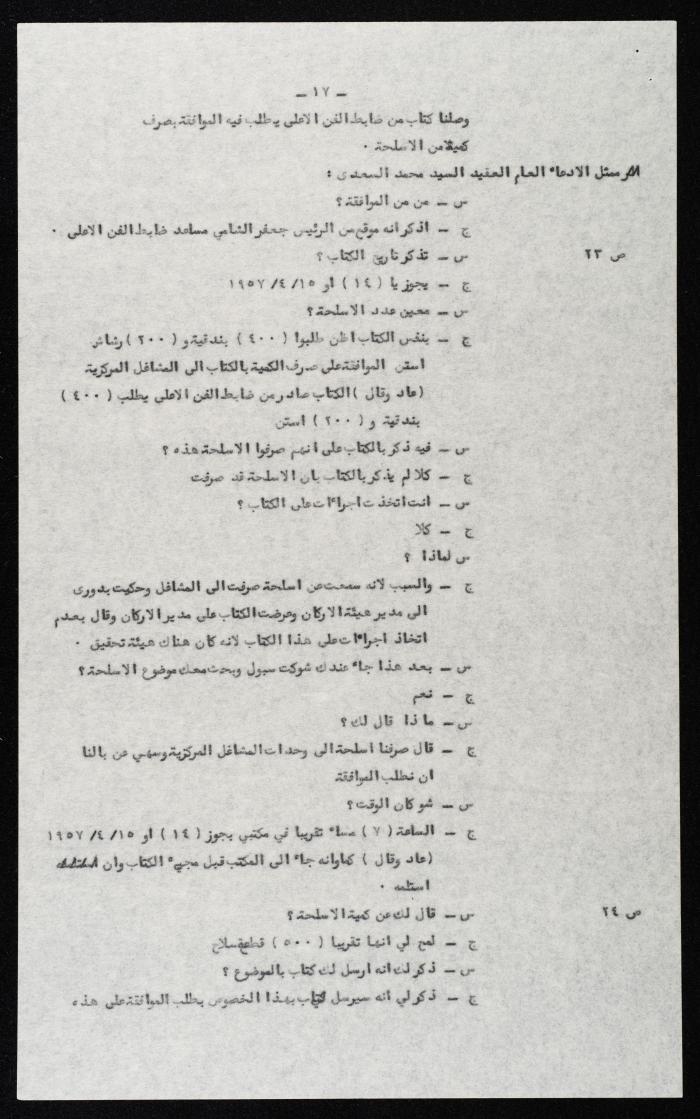 ـ ١٧ ـ
وصلنا كتاب من ضابط الفن الاعلى يطلب فيه الموافقة بصرف
كمية من الاسلحة ٠
ممثل الادعاء العام العقيد السيد محمد السعدى :
س ـ من من الموافقة ؟
ج ـ اذكر انه موقع من الرئيس جعفر الشامي مساعد ضابط الفن الاعلى ٠
ص ٢٣ س ـ تذكر تاريخ الكتاب ؟
ج ـ يجوز يا ( ١٤ ) او ١٥ /٤ /١٩٥٧
س ـ معين عدد الاسلحة ؟
ج ـ بنفس الكتاب اظن طلبوا ( ٤٠٠ ) بندقية و ( ٢٠٠ ) رشاش
استن الموافقة على صرف الكمية بالكتاب الى المشاغل المركزية
(عاد وقال ) الكتاب صادر من ضابط الفن الاعلى يطلب ( ٤٠٠ )
بندقية و ( ٢٠٠ ) استن
س ـ فيه ذكر بالكتاب على انهم صرفوا الاسلحة هذه ؟
ج ـ كلا لم يذكر بالكتاب بان الاسلحة قد صرفت
س ـ انت اتخذت اجراءات على الكتاب ؟
ج ـ كلا
س لماذا ؟
ج ـ والسبب لانه سمعت عن اسلحة صرفت الى المشاغل وحكيت بدورى
الى مدير هيئة الاركان وعرضت الكتاب على مدير الاركان وقال بعدم
اتخاذ اجراءات على هذا الكتاب لانه كان هناك هيئة تحقيق ٠
س ـ بعد هذا جاء عندك شوكت سبول وبحث معك موضوع الاسلحة ؟
ج ـ نعم
س ـ ما ذا قال لك ؟
ج ـ قال صرفنا اسلحة الى وحدات المشاغل المركزية وسهي عن بالنا
ان نطلب الموافقة
س ـ شو كان الوقت ؟
ج ـ الساعة ( ٧ ) مساء تقريبا في مكتبي يجوز ( ١٤ ) او ١٥ /٤ /١٩٥٧
(عاد وقال ) كما وانه جاء الى المكتب قبل مجيء الكتاب وان
استلمه ٠
ص ٢٤ س ـ قال لك عن كمية الاسلحة ؟
ج ـ لمح لي انها تقريبا ( ٥٠٠ ) قطعة سلاح
س ـ ذكر لك انه ارسل لك كتاب بالموضوع ؟
ج ـ ذكر لي انه سيرسل كتاب بهذا الخصوص بطلب الموافقة على هذه